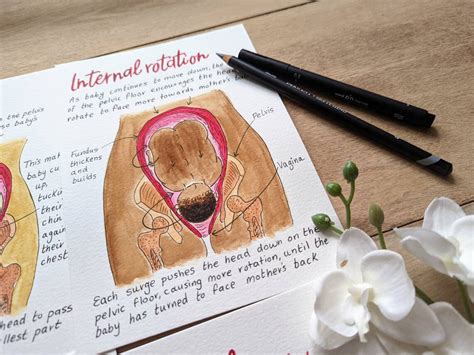 Internal rotation
As baby continues to move down, the
of the pelvic floor encourages the head
rotate to face more towards mother's ba
Fundus
thickens
and
builds
Pelvis
Vagina
Each surge pushes the head down on the
pelvic floor, causing more rotation, until the
baby has turned to face mother's back
the pelvis
baby's
This
baby
up,
tuckin
their
chin
again
their
chest
head to pass
llest part